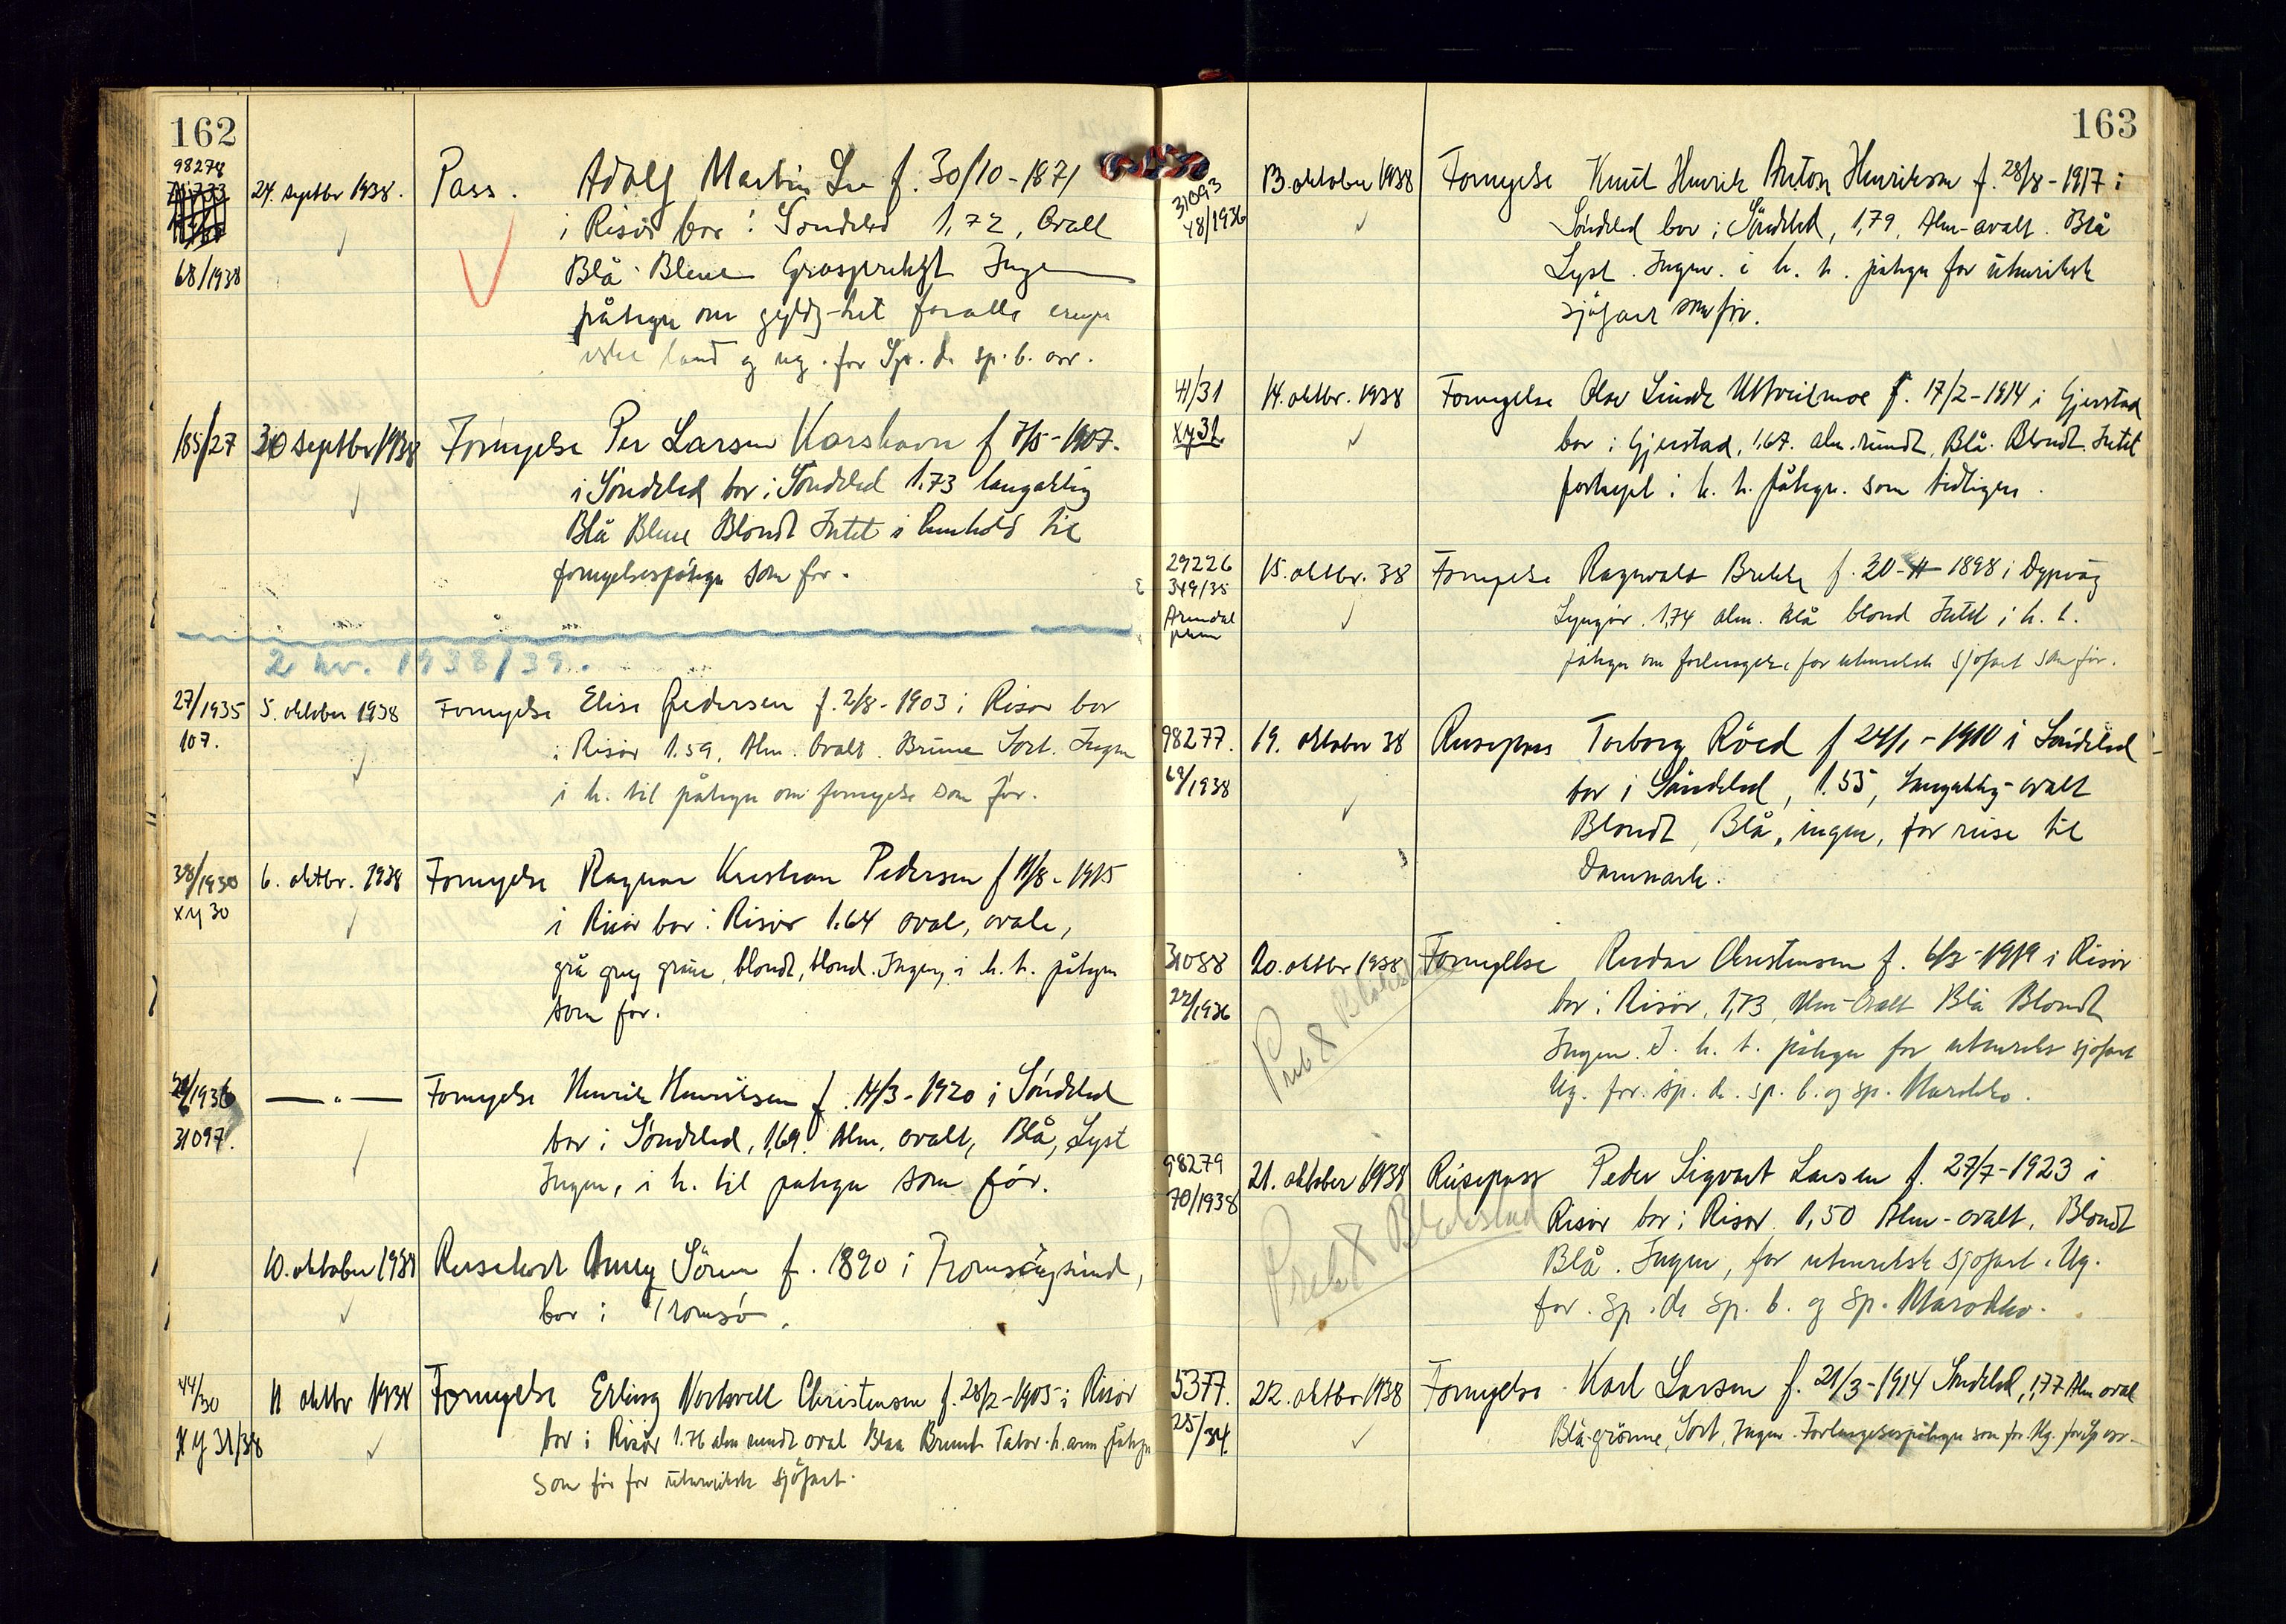 162
98278
68/1938
24. septbr 1938.
Pass. Adolf Martin f. 30/10-1871
i Risör bor i Söndeled 1,72, Ovalt
Blå Blene Gråsprengt Ingen
påtegn om gyldighet for alle europe
iske land og ug. for Sp. d. sp. b. orr.
185/27
30 septbr 1938
Fornyelse Per Larsen Korshavn f 7/5-1907.
i Söndeled bor i Söndeled 1.73 langaktig
Blå Blene Blondt Intet i henhold til
fornyelsespåtegn som för.
2 kv. 1938/39.
27/1935
107.
5. oktober 1938
Fornyelse Elise Pedersen f. 2/8-1903 i Risör bor
i Risör 1.59. Alm. Ovalt. Brune Sort. Ingen
i h. til påtegn om fornyelse som för.
38/1930
xy 30
6. oktbr. 1938
Fornyelse Ragnar Kristian Pedersen f 11/8-1915
i Risör bor i Risör 1.64 oval, ovale,
grå grey grise, blondt, blond. Ingen, i h. t. påtegn
som för.
/1936
31097.
— " —
Fornyelse Henrik Henriksen f. 14/3-1920 i Söndeled
bor i Söndeled, 1,69. Alm. ovalt, Blå, Lyst
Ingen, i h. til påtegn som för.
10. oktober 1938
Reisekort Anny Sören f. 1890 i Tromsöysund,
bor i Tromsö.
44/30
xy 31/38
11 oktbr 1938
Fornyelse Erling Christensen f. 28/2-1905 i Risör
bor i Risör 1.76 alm rundt oval Blaa Brunt Tator. h. arm påtegn
som för for utenriksk sjöfart.
163
31093
48/1936
13. oktober 1938
Fornyelse Knut Henrik Anton Henriksen f. 28/8-1917 i
Söndeled bor i Söndeled, 1,79, Alm-ovalt. Blå
Lyst. Ingen. i h. t. påtegn for utenriksk
sjöfart som för.
41/31
xy 31
14. oktbr. 1938
Fornyelse Olav Linde f. 17/2-1914 i Gjerstad
bor i Gjerstad, 1.67. alm. rundt, Blå. Blondt. Intet
i h. t. påtegn. som tidligere.
29226
349/35
Arendal
15. oktbr. 38
Fornyelse Ragnvald Brekke f. 20-11-1898 i Dypvåg
Lyngör. 1,74 alm. blå blond Intet i h. t.
påtegn om forlengelse for utenriksk sjöfart som för.
98277.
69/1938
19. oktober 38
Reisepass Torborg Röed f 24/1-1910 i Söndeled
bor i Söndeled, 1.55, Langaktig-ovalt
Blondt, Blå, ingen, for reise til
Danmark.
31088
22/1936
20. oktbr 1938
Fornyelse Reidar Christensen f. 6/2-1919 i Risör
bor i Risör, 1,73, Alm-Ovalt Blå Blondt
Ingen. I. h. t. påtegn for utenriks sjöfart
Ug. for sp. d. sp. b. og sp. Marokko.
98279
70/1938
21. oktober 1938
Reisepass Peder Sigvart Larsen f. 27/7-1923 i
Risör bor i Risör 1,50 Alm-ovalt. Blondt
Blå. Ingen, for utenriksk sjöfart. Ug.
for. sp. d. sp. b. og sp. Marokko.
5377.
25/34.
22. oktbr 1938
Fornyelse Karl Larsen f. 21/3-1914 Söndeled, 1,77 Alm oval
Blå-grönne, Sort, Ingen. Forlengelsespåtegn som för. Ug. for Sp orr.